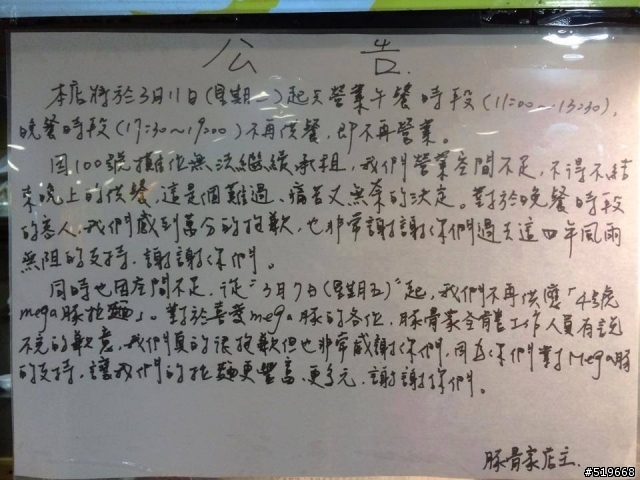 公告.
本店將於3月11日(星期二)起只營業午餐時段(11:00~13:30),
晚餐時段(17:30~19:00)不再供餐,即不再營業。
因100號攤位無法繼續承租,我們營業空間不足,不得不結
束晚上的供餐,這是個難過、痛苦又無奈的決定。對於晚餐時段
的客人,我們感到萬分的抱歉,也非常謝謝你們過去這四年風雨
無阻的支持,謝謝你們。
同時也因空間不足,從"3月7日(星期五)"起,我們不再供應「4號
mega豚拉麵」。對於喜愛mega豚的各位,豚骨家全體工作人員有說
不完的歉意,我們真的很抱歉但也非常感謝你們,因為你們對Mega豚
的支持,讓我們的拉麵更豐富、更多元,謝謝你們。
豚骨家店主.
#519668